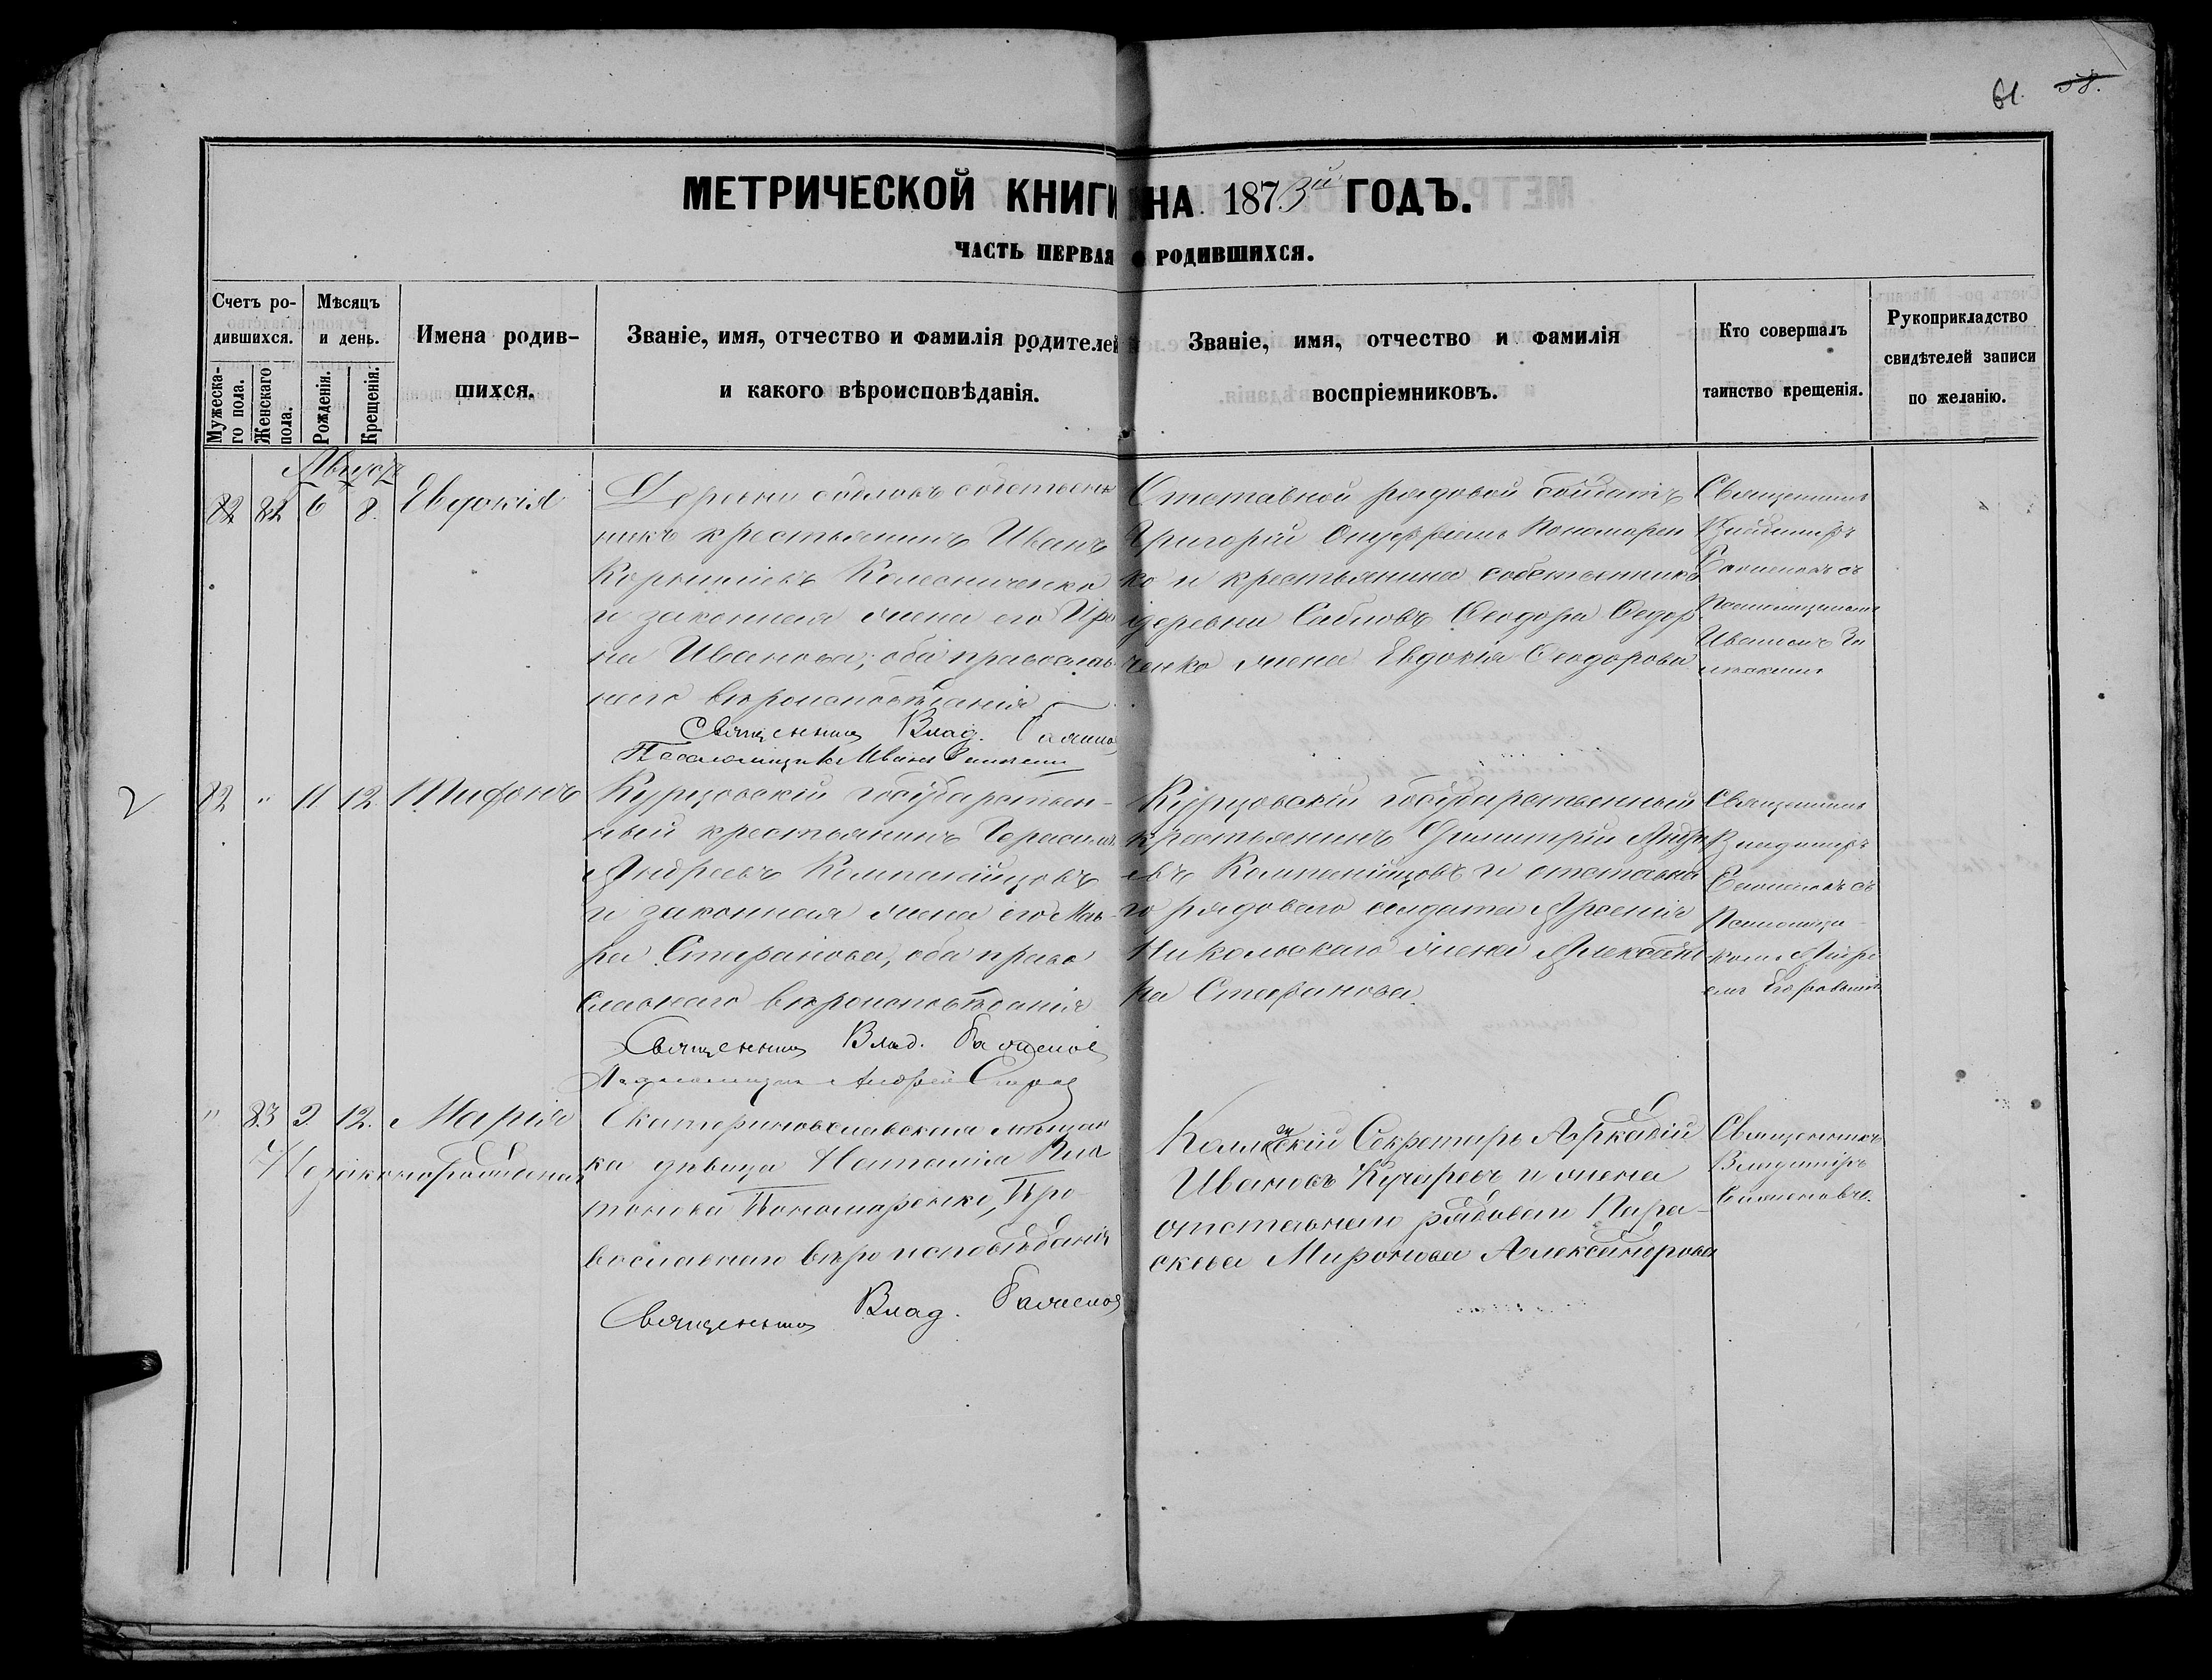 61. 58.
МЕТРИЧЕСКОЙ КНИГИ НА 1873й ГОДЪ.
ЧАСТЬ ПЕРВАЯ О РОДИВШИХСЯ.
Счетъ ро-
дившихся.
Мужеска-
го пола.
Женскаго
пола.
Мѣсяцъ
и день.
Рожденія.
Крещенія.
Имена родив-
шихся.
Званіе, имя, отчество и фамилія родителей
и какого вѣроисповѣданія.
Званіе, имя, отчество и фамилія
воспріемниковъ.
Кто совершалъ
таинство крещенія.
Рукоприкладство
свидѣтелей записи
по желанію.
Августъ
82 82 6 8. Евдокія
Деревни собствен
никъ крестьянинъ Иванъ
Колесниченко
и законная жена его Ири
на Иванова; оба православ
наго вѣроисповѣданія
Священникъ Влад. Баженовъ
Псаломщикъ Иванъ
Отставной рядовой солдатъ
Григорій Онуфріевъ Пономарен
ко и крестьянина собственника
деревни Ѳеодора Ѳедор
ченко жена Евдокія Ѳеодорова
Священникъ
Владиміръ
Баженовъ съ
Псаломщикомъ
Иваномъ
2
82 " 11 12 Тифонъ
государствен-
ный крестьянинъ Герасимъ
Андреевъ Компанійцовъ
и законная жена его Мав-
ра Стефанова, оба право
славнаго вѣроисповѣданія
Священникъ Влад. Баженовъ
Псаломщикъ Андрей
государственный
крестьянинъ Димитрій Андре
евъ Компанійцовъ и отставна
го рядоваго солдата Арсенія
Никольскаго жена Александ
ра Стефанова.
Священникъ
Владиміръ
Баженовъ съ
Псаломщи-
комъ Андре
емъ
" 83 9 12. Марія
Незаконнорожденная
Екатеринославская мѣщан
ка дѣвица Наталія
Пономаренко, Пра
вославнаго вѣроисповѣданія
Священникъ Влад. Баженовъ
Секретарь Аркадій
Ивановъ и жена
отставнаго рядоваго Пара-
скева Миронова Александрова
Священникъ
Владиміръ
Баженовъ.